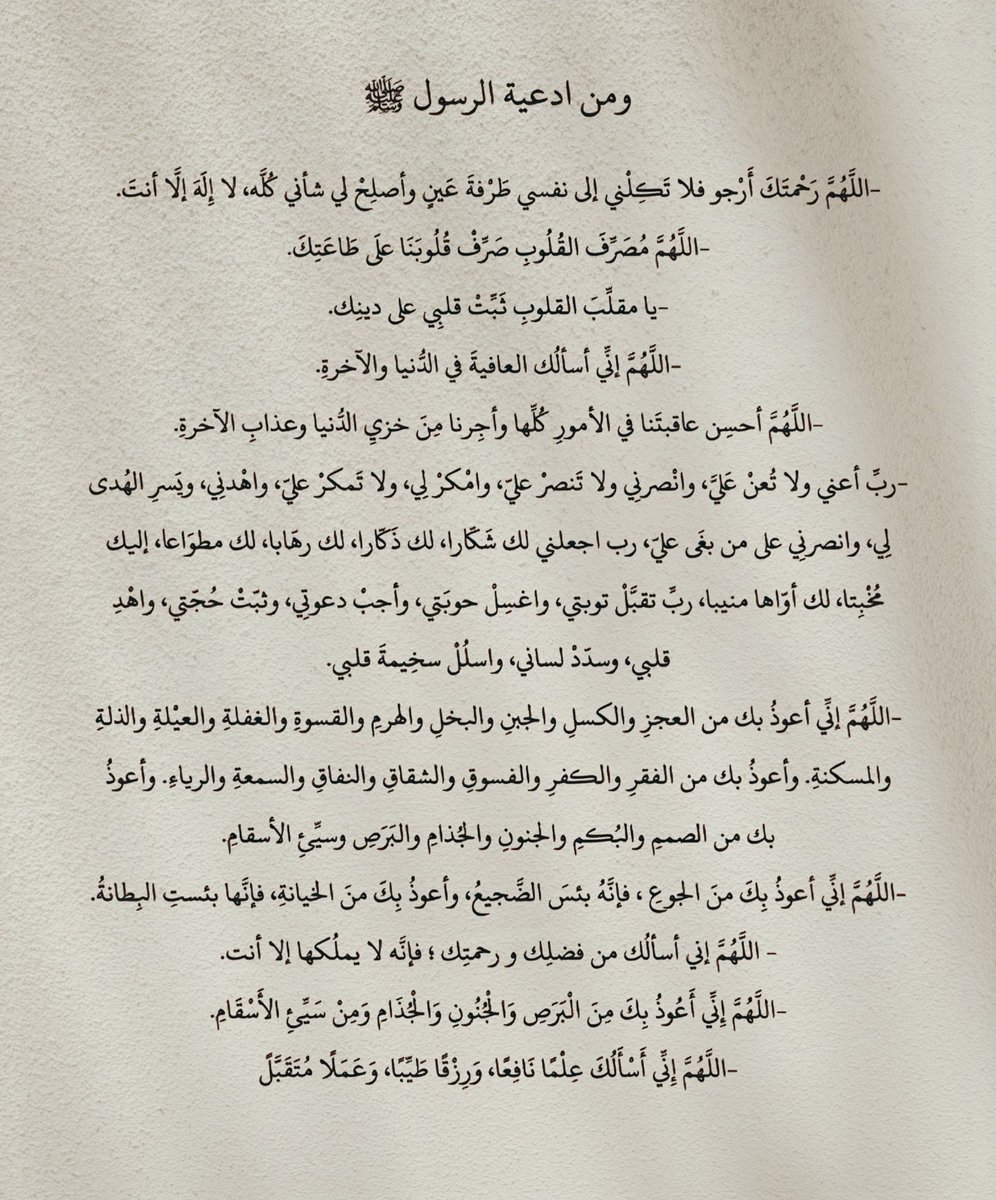 ومن ادعية الرسول ﷺ
-اللَّهُمَّ رَحْمتَكَ أَرْجو فلا تَكِلْني إلى نفسي طَرْفةَ عَينٍ وأصلِحْ لي شأني كُلَّه، لا إِلَهَ إلَّا أنتَ.
-اللَّهُمَّ مُصَرِّفَ القُلُوبِ صَرِّفْ قُلُوبَنَا علَى طَاعَتِكَ.
-يا مقلِّبَ القلوبِ ثَبِّتْ قلبِي على دينِك.
-اللَّهُمَّ إنِّي أسألُك العافيةَ في الدُّنيا والآخرةِ.
-اللَّهُمَّ أحسِن عاقبتَنا في الأمورِ كُلِّها وأجِرنا مِنَ خزيِ الدُّنيا وعذابِ الآخرةِ.
-ربِّ أعني ولا تُعنْ عَليَّ، وانْصرنِي ولا تَنصرْ عليّ، وامْكرْ لِي، ولا تَمكرْ عليّ، واهْدنِي، ويَسرِ الهُدى
لِي، وانصرنِي على من بغَى عليّ، رب اجعلني لك شَكّارا، لك ذَكّارا، لك رهّابا، لك مطوَاعا، إليك
مُخْبِتا، لك أوّاها منيبا، ربِّ تقبَّلْ توبتي، واغسِلْ حوبَتي، وأجبْ دعوتِي، وثبّتْ حُجّتي، واهْدِ
قلبي، وسدّدْ لساني، واسلُلْ سخِيمةَ قلبي.
-اللَّهُمَّ إنِّي أعوذُ بك من العجزِ والكسلِ والجبنِ والبخلِ والهرمِ والقسوةِ والغفلةِ والعيْلةِ والذلةِ
والمسكنةِ. وأعوذُ بك من الفقرِ والكفرِ والفسوقِ والشقاقِ والنفاقِ والسمعةِ والرياءِ. وأعوذُ
بك من الصممِ والبُكمِ والجنونِ والجُذامِ والبَرَصِ وسيِّئِ الأسقامِ.
-اللَّهُمَّ إنِّي أعوذُ بِكَ منَ الجوعِ ، فإنَّهُ بئسَ الضَّجيعُ، وأعوذُ بِكَ منَ الخيانةِ، فإنَّها بئستِ البِطانةُ.
- اللَّهُمَّ إني أسألُك من فضلِك و رحمتِك ؛ فإنَّه لا يملُكها إلا أنت.
-اللَّهُمَّ إِنِّي أَعُوذُ بِكَ مِنَ الْبَرَصِ وَالْجُنُونِ وَالْجُذَامِ وَمِنْ سَيِّئِ الأَسْقَامِ.
-اللَّهُمَّ إِنِّي أَسْأَلُكَ عِلْمًا نَافِعًا، وَرِزْقًا طَيِّبًا، وَعَمَلًا مُتَقَبَّلً